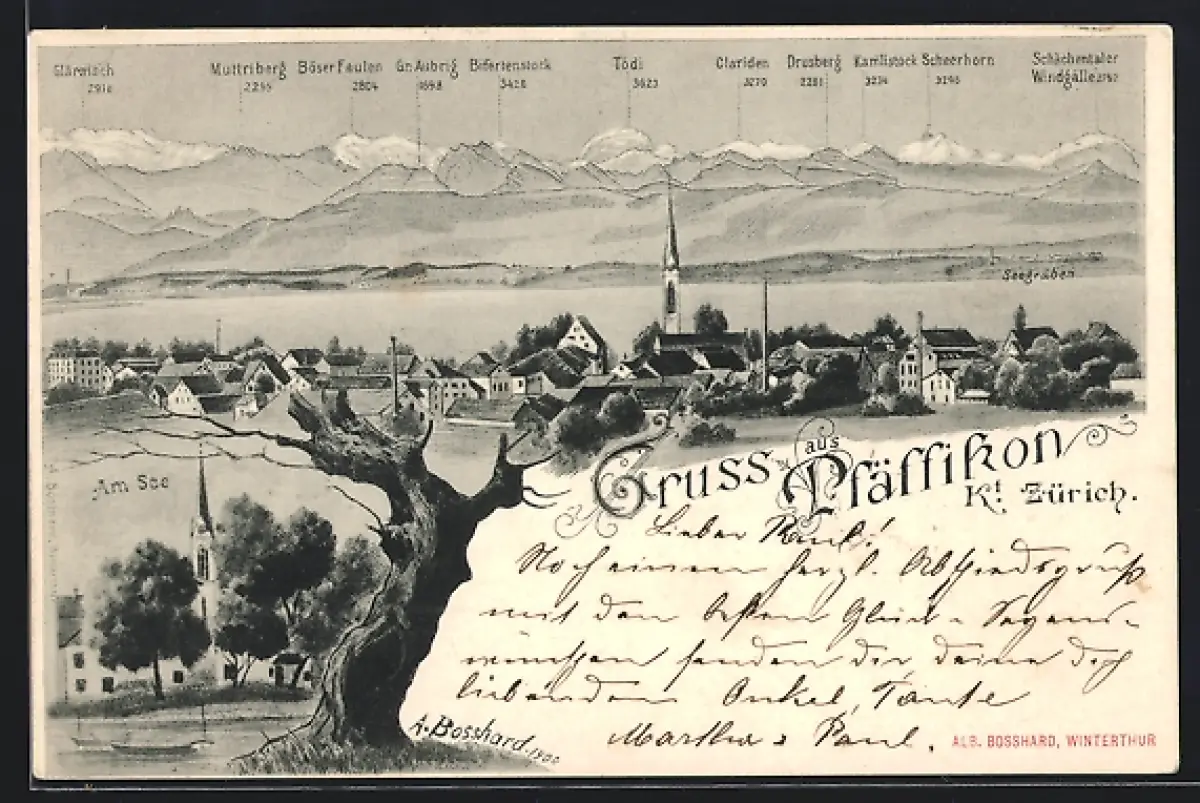 Glärnisch Muttriberg Böser Faulen Gr. Aubrig Bifertenstock Tödi Clariden Drusberg Kamlistock Scheerhorn Schächentaler
2916 2295 2804 1698 3426 3623 3270 2281 3234 3296 Windgälle 2752
Seegräben
Am See
Gruss aus Pfäffikon
Kt. Zürich.
Lieber Paul!
Noch einen herzl. Abschiedsgruß
mit den besten Glück- & Segens-
wünschen senden dir deine dich
liebenden Onkel, Tante
Martha & Paul.
A. Bosshard 1900
ALB. BOSSHARD, WINTERTHUR